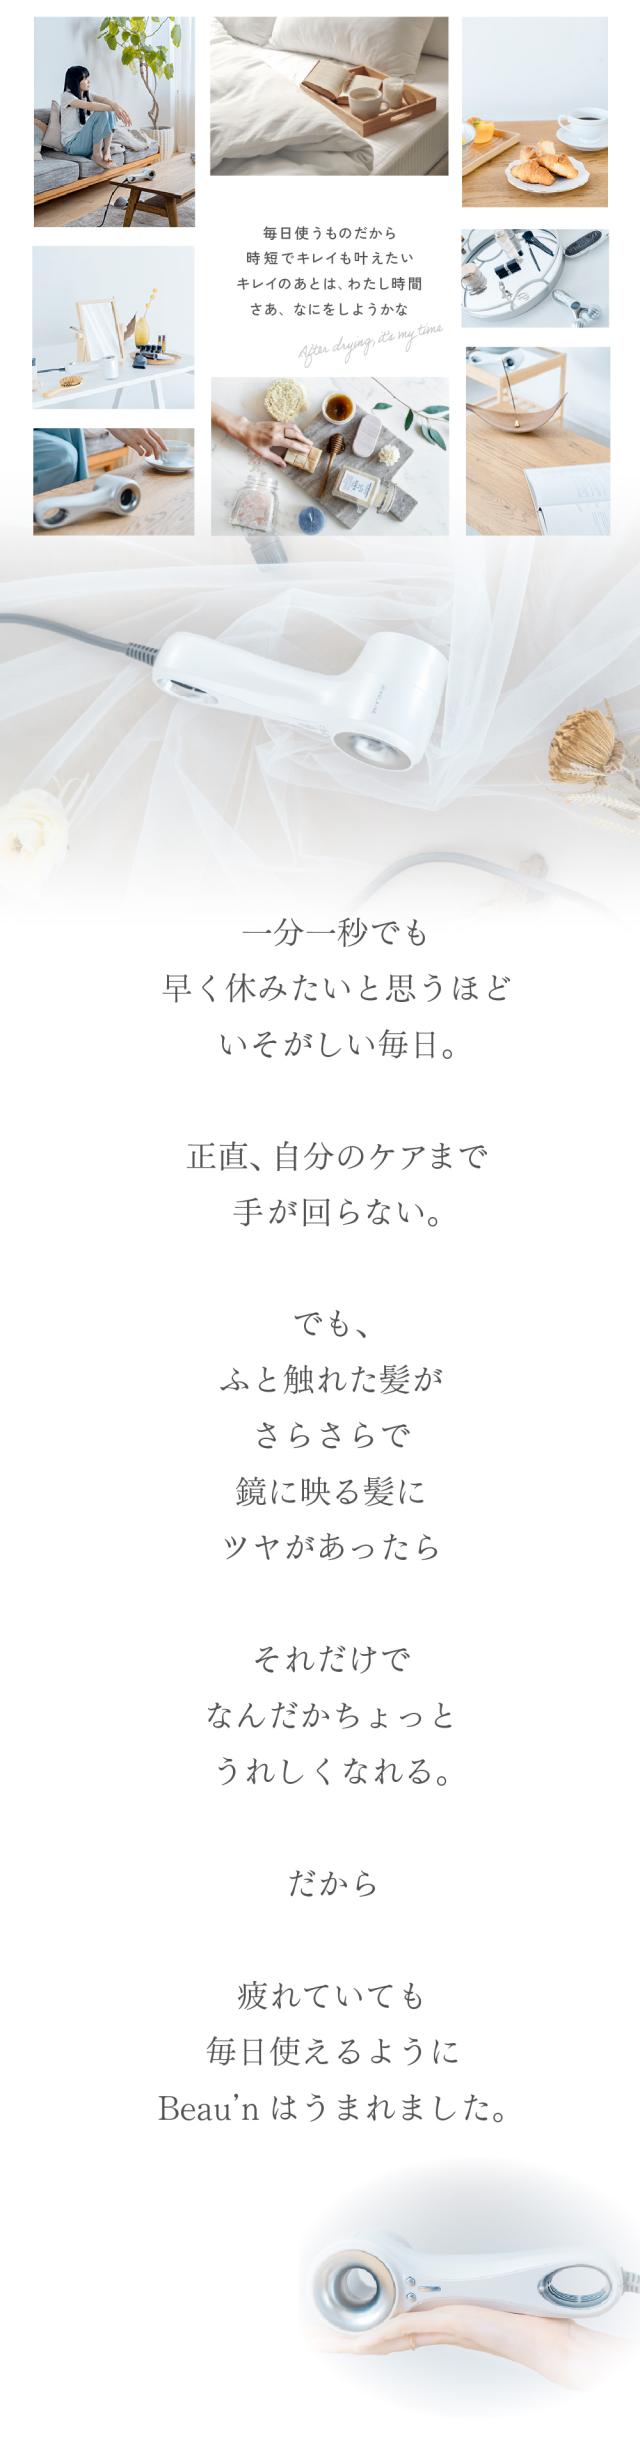 毎日使うものだから
時短でキレイも叶えたい
キレイのあとは、わたし時間
さあ、なにをしようかな
After drying, it's my time
一分一秒でも
早く休みたいと思うほど
いそがしい毎日。
正直、自分のケアまで
手が回らない。
でも、
ふと触れた髪が
さらさらで
鏡に映る髪に
ツヤがあったら
それだけで
なんだかちょっと
うれしくなれる。
だから
疲れていても
毎日使えるように
Beau’n はうまれました。